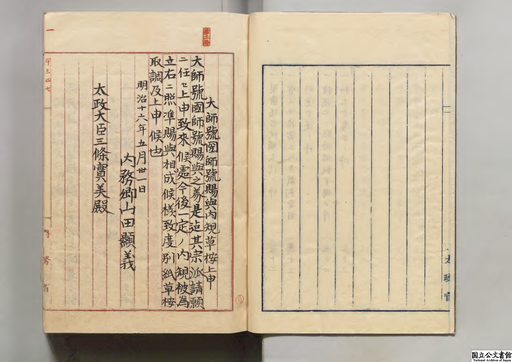 大師號國師號賜與内規草桉上申
大師號國師號賜與之義是迠其宗派請願
ニ任セ上申致来候處今後一定ノ内規被為
立右ニ照準賜與相成候様致度別紙草桉
取調及上申候也
明治十六年五月卅一日
内務卿山田顯義
太政大臣三條實美殿
国立公文書館
National Archives of Japan